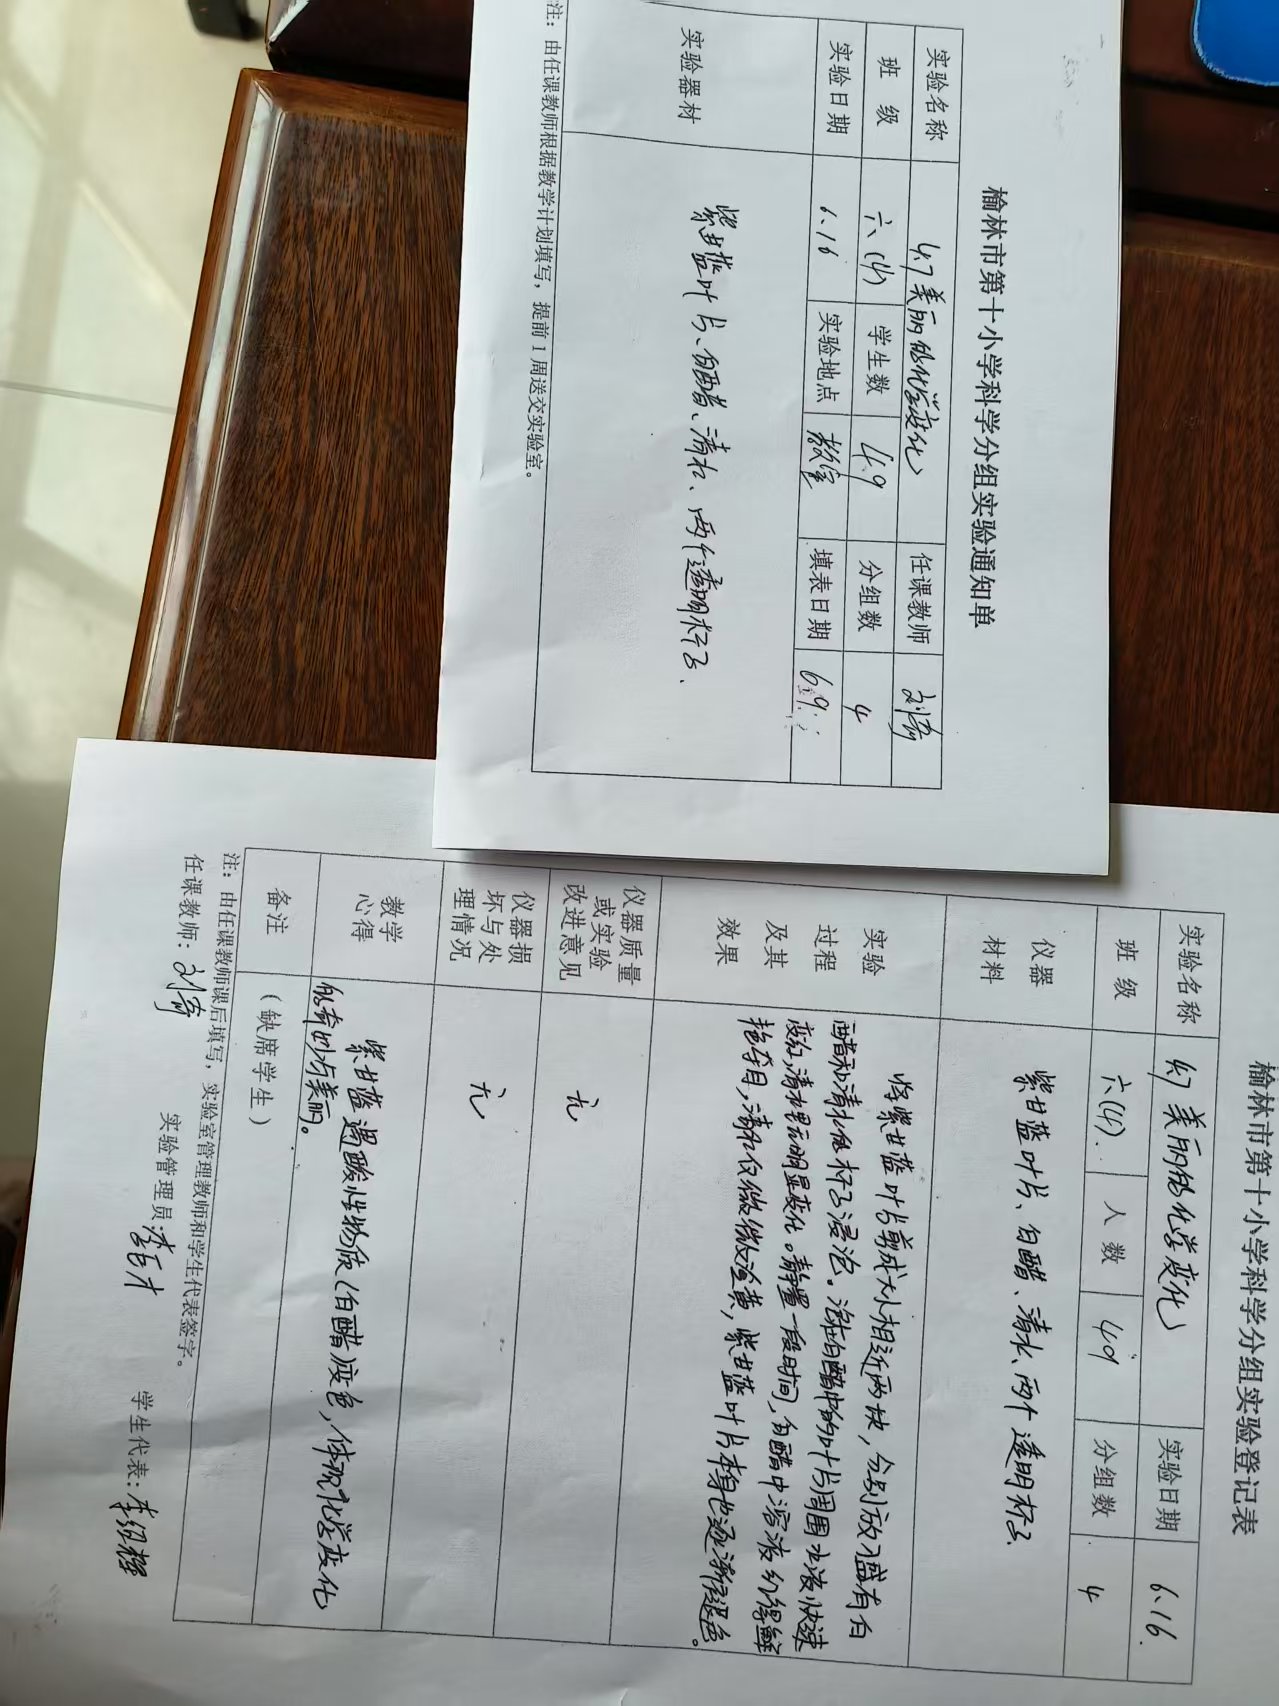 榆林市第十小学科学分组实验通知单
实验名称 47 美丽的化学变化 任课教师
班 级 六(4) 学生数 49 分组数 4
实验日期 6.16 实验地点 教室 填表日期 6.9
实验器材 紫甘蓝叶片、白醋、清水、两个透明杯子、
注：由任课教师根据教学计划填写，提前1周送交实验室。
榆林市第十小学科学分组实验登记表
实验名称 47 美丽的化学变化 实验日期 6.16.
班 级 六(4) 人 数 49 分组数 4
仪器
材料
紫甘蓝叶片、白醋、清水、两个透明杯子
实验
过程
及其
效果
将紫甘蓝叶片剪成大小相近两块，分别放入盛有白
醋和清水的杯子浸泡。泡在白醋中的叶片周围水液快速
变红，清水里无明显变化。静置一段时间，白醋中溶液红得鲜
艳夺目，清水仅微微泛黄，紫甘蓝叶片本身也逐渐褪色。
仪器质量
或实验
改进意见
无
仪器损
坏与处
理情况
无
教学
心得
紫甘蓝遇酸性物质(白醋)变色，体现化学变化
的奇妙与美丽。
备注 (缺席学生)
注：由任课教师课后填写，实验室管理教师和学生代表签字。
任课教师： 实验管理员 学生代表：